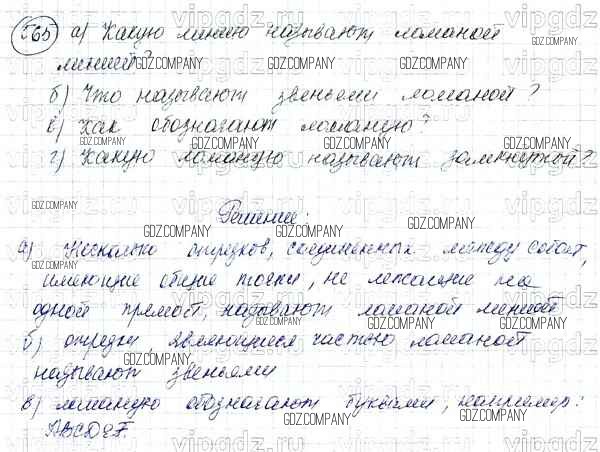 565 а) Какую линию называют ломаной
линией?
б) Что называют звеньями ломаной?
в) Как обозначают ломаную?
г) Какую ломаную называют замкнутой?
Решение:
а) Несколько отрезков, соединенных между собой,
имеющие общие точки, не лежащие на
одной прямой, называют ломаной линией
б) отрезки, являющиеся частью ломаной
называют звеньями
в) ломаную обозначают буквами, например:
ABCDEF.